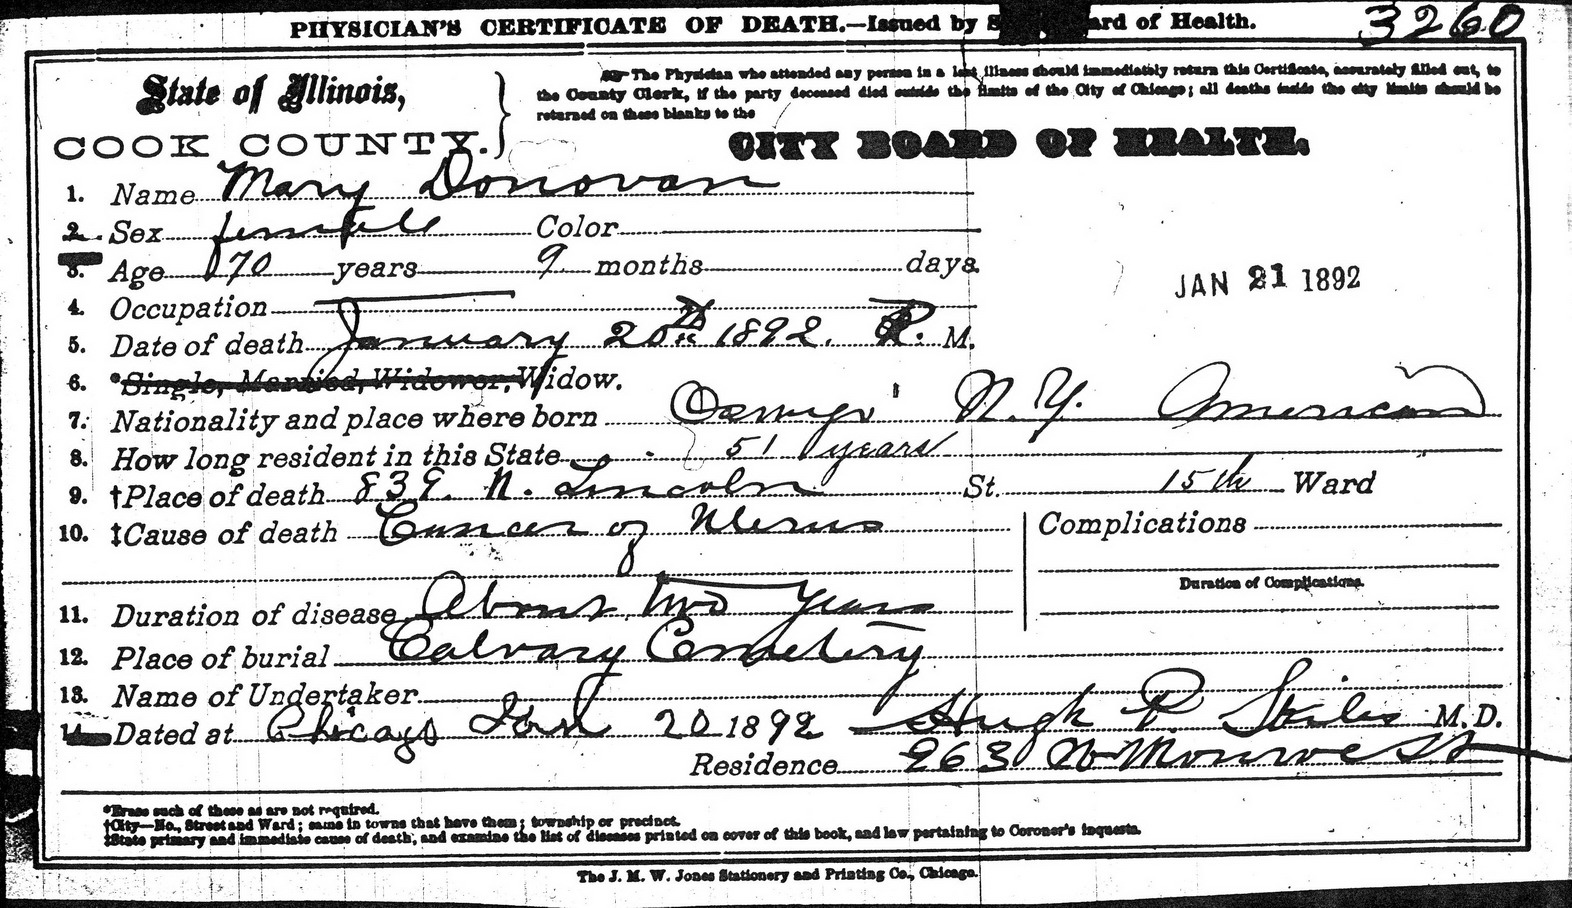 PHYSICIAN'S CERTIFICATE OF DEATH.—Issued by S ard of Health. 3260
State of Illinois,
COOK COUNTY.
The Physician who attended any person in a last illness should immediately return this Certificate, accurately filled out, to
the County Clerk, if the party deceased died outside the limits of the City of Chicago; all deaths inside the city limits should be
returned on these blanks to the
CITY BOARD OF HEALTH.
1. Name Mary Donovan
2. Sex female Color
3. Age 70 years 9 months days.
JAN 21 1892
4. Occupation
5. Date of death January 20th 1892. P. M.
6. *Single, Married, Widower, Widow.
7. Nationality and place where born Oswego N.Y. American
8. How long resident in this State 51 years
9. †Place of death 839. N. Lincoln St. 15th Ward
10. ‡Cause of death Cancer of Uterus Complications
Duration of Complications.
11. Duration of disease About two years
12. Place of burial Calvary Cemetery
13. Name of Undertaker
14. Dated at Chicago Jan 20 1892 Hugh P Skiles M.D.
Residence 963 W Monroe St
*Erase such of these as are not required.
†City—No., Street and Ward; same in towns that have them; township or precinct.
‡State primary and immediate cause of death, and examine the list of diseases printed on cover of this book, and law pertaining to Coroner's inquests.
The J. M. W. Jones Stationery and Printing Co., Chicago.